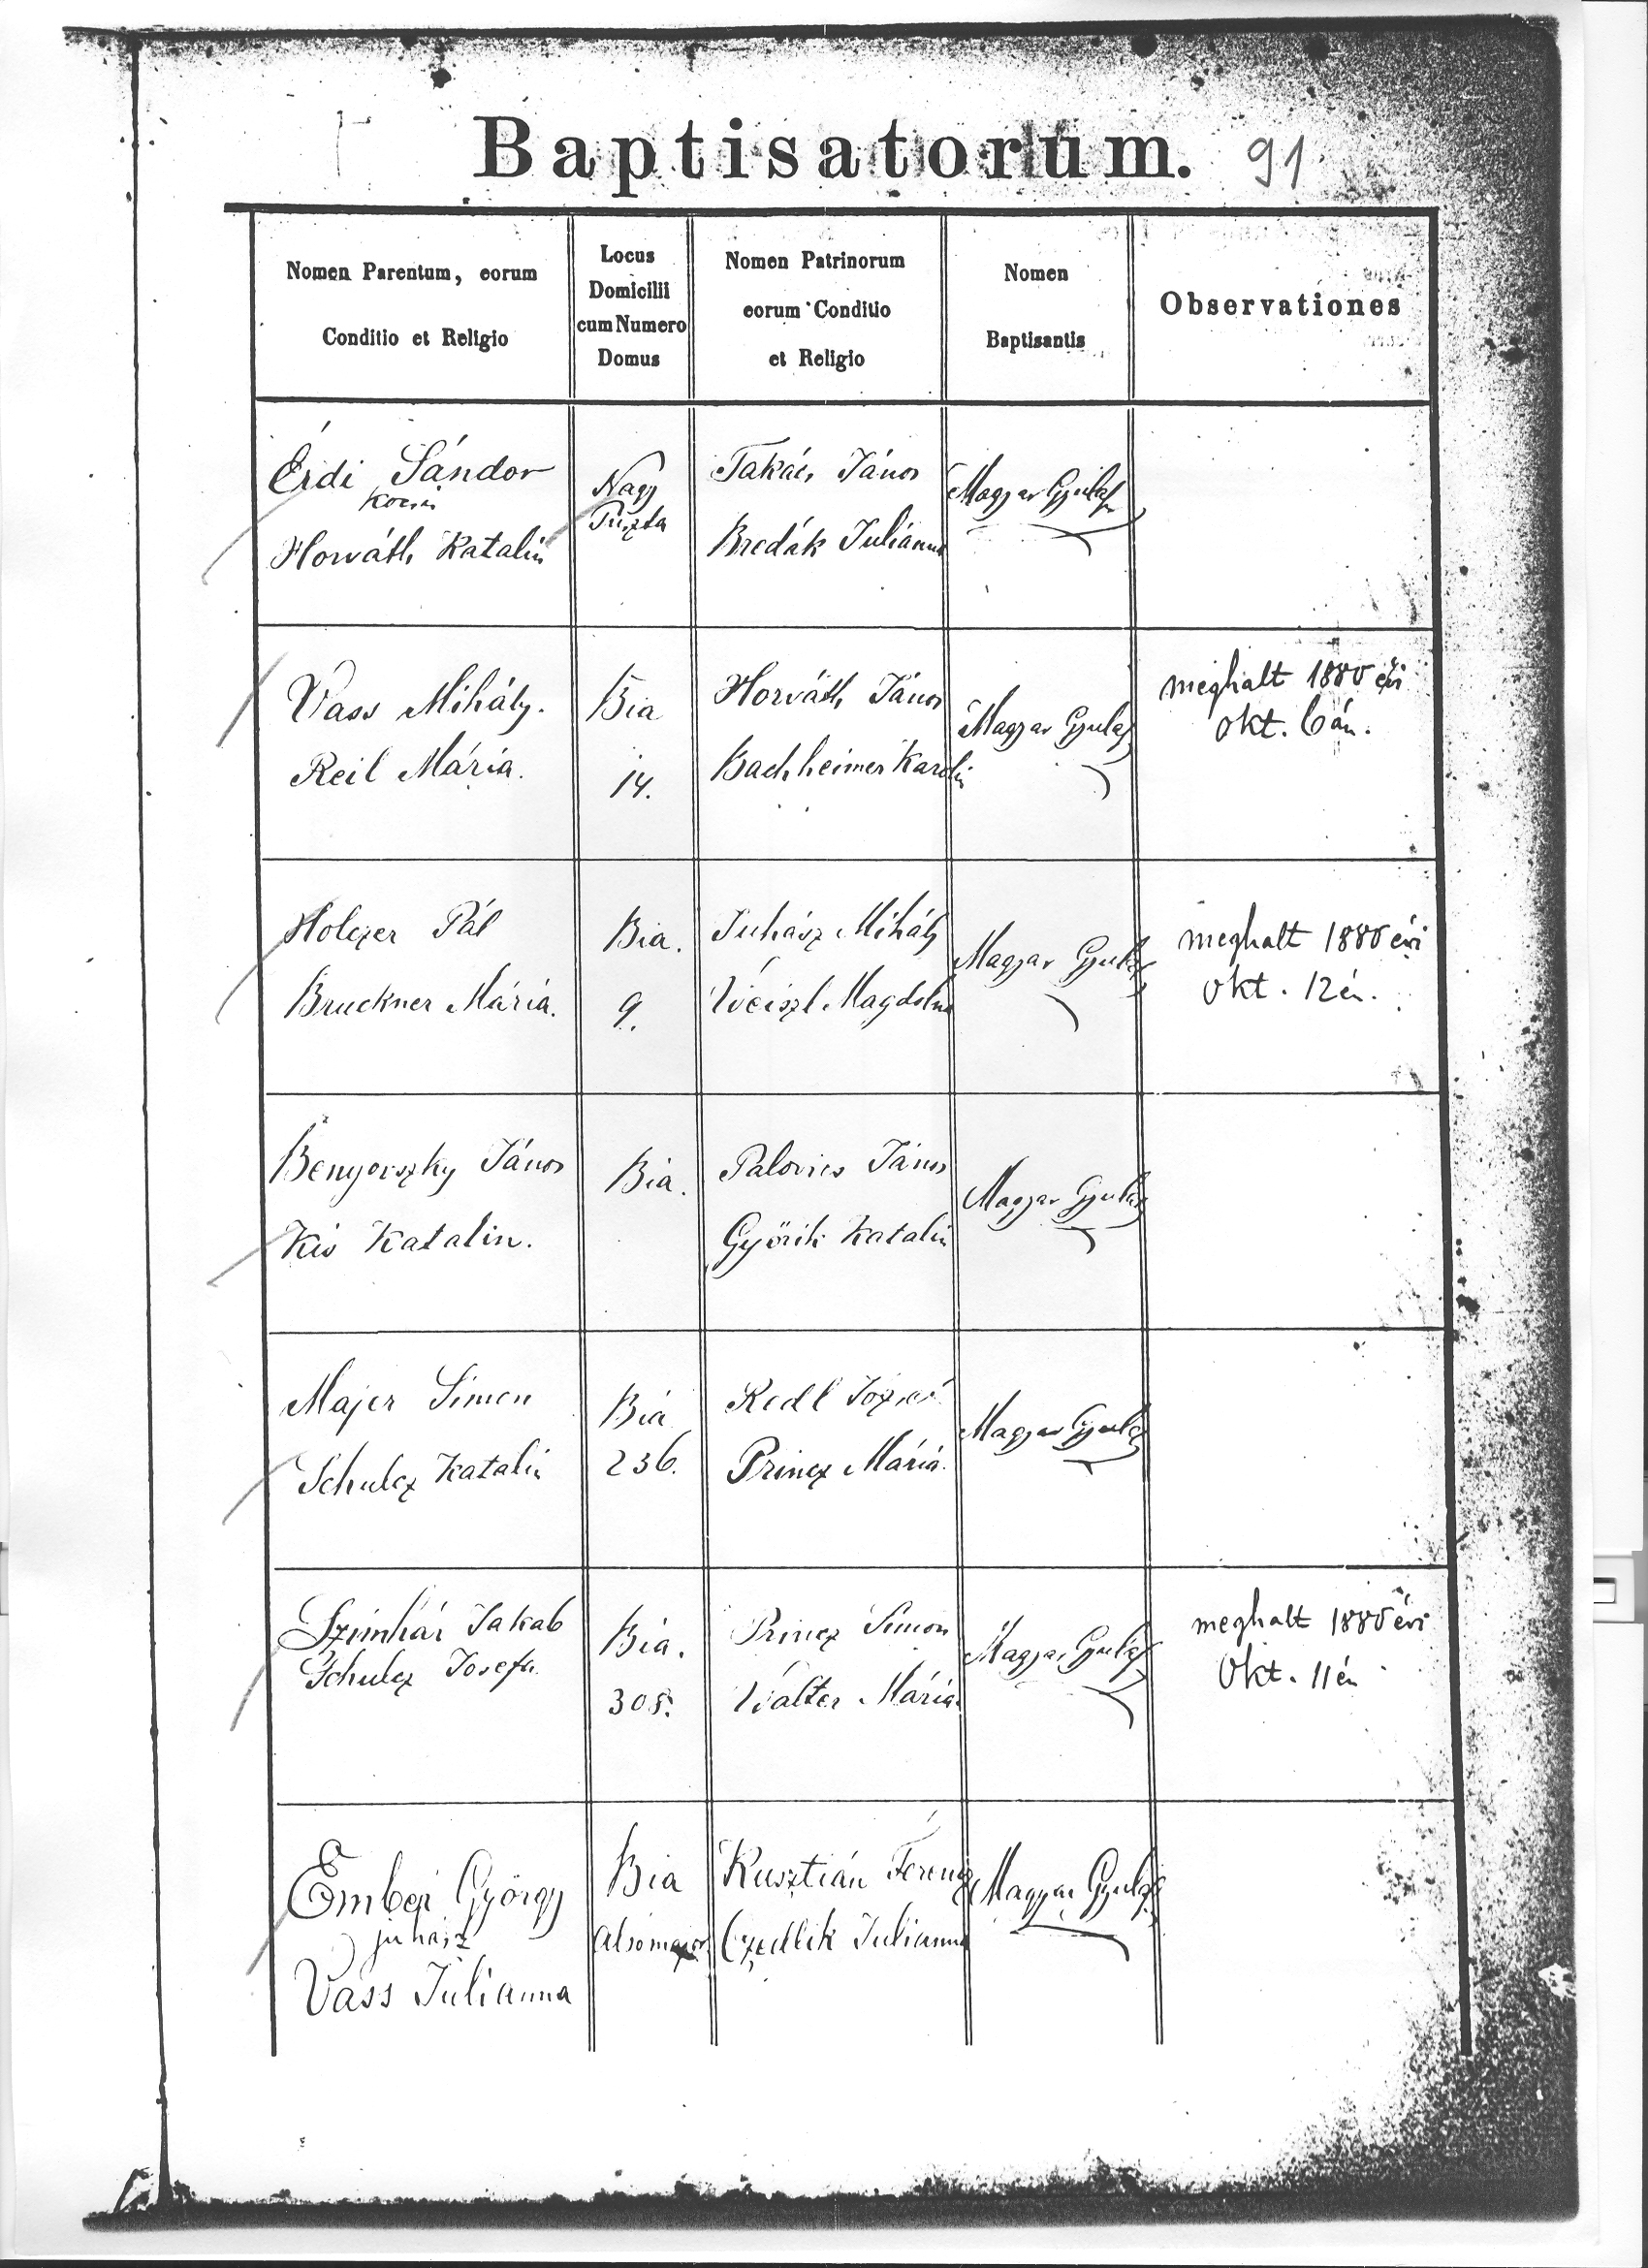 Baptisatorum. 91
Nomen Parentum, eorum
Conditio et Religio
Locus
Domicilii
cum Numero
Domus
Nomen Patrinorum
eorum Conditio
et Religio
Nomen
Baptisantis
Observationes
Érdi Sándor
kocsis
Horváth Katalin
Nagy
Puszta
Takács János
Bredák Julianna
Magyar Gyula
Vass Mihály.
Reil Mária.
Bia
14.
Horváth János
Bachheimer Karolin
Magyar Gyula
meghalt 1880 évi
okt. 6án.
Holczer Pál
Bruckner Mária.
Bia.
9.
Juhász Mihály
Weiszl Magdolna
Magyar Gyula
meghalt 1880 évi
okt. 12én.
Benyovszky János
Kis Katalin.
Bia.
Palovics János
Györik Katalin
Magyar Gyula
Majer Simon
Schulcz Katalin
Bia
236.
Redl József
Princz Mária.
Magyar Gyula
Szimhár Jakab
Schulcz Josefa.
Bia.
308.
Princz Simon
Walter Mária.
Magyar Gyula
meghalt 1880 évi
Okt. 11én
Ember György
juhász
Vass Julianna
Bia
alsomajor
Kusztián Ferencz
Czedlik Julianna
Magyar Gyula